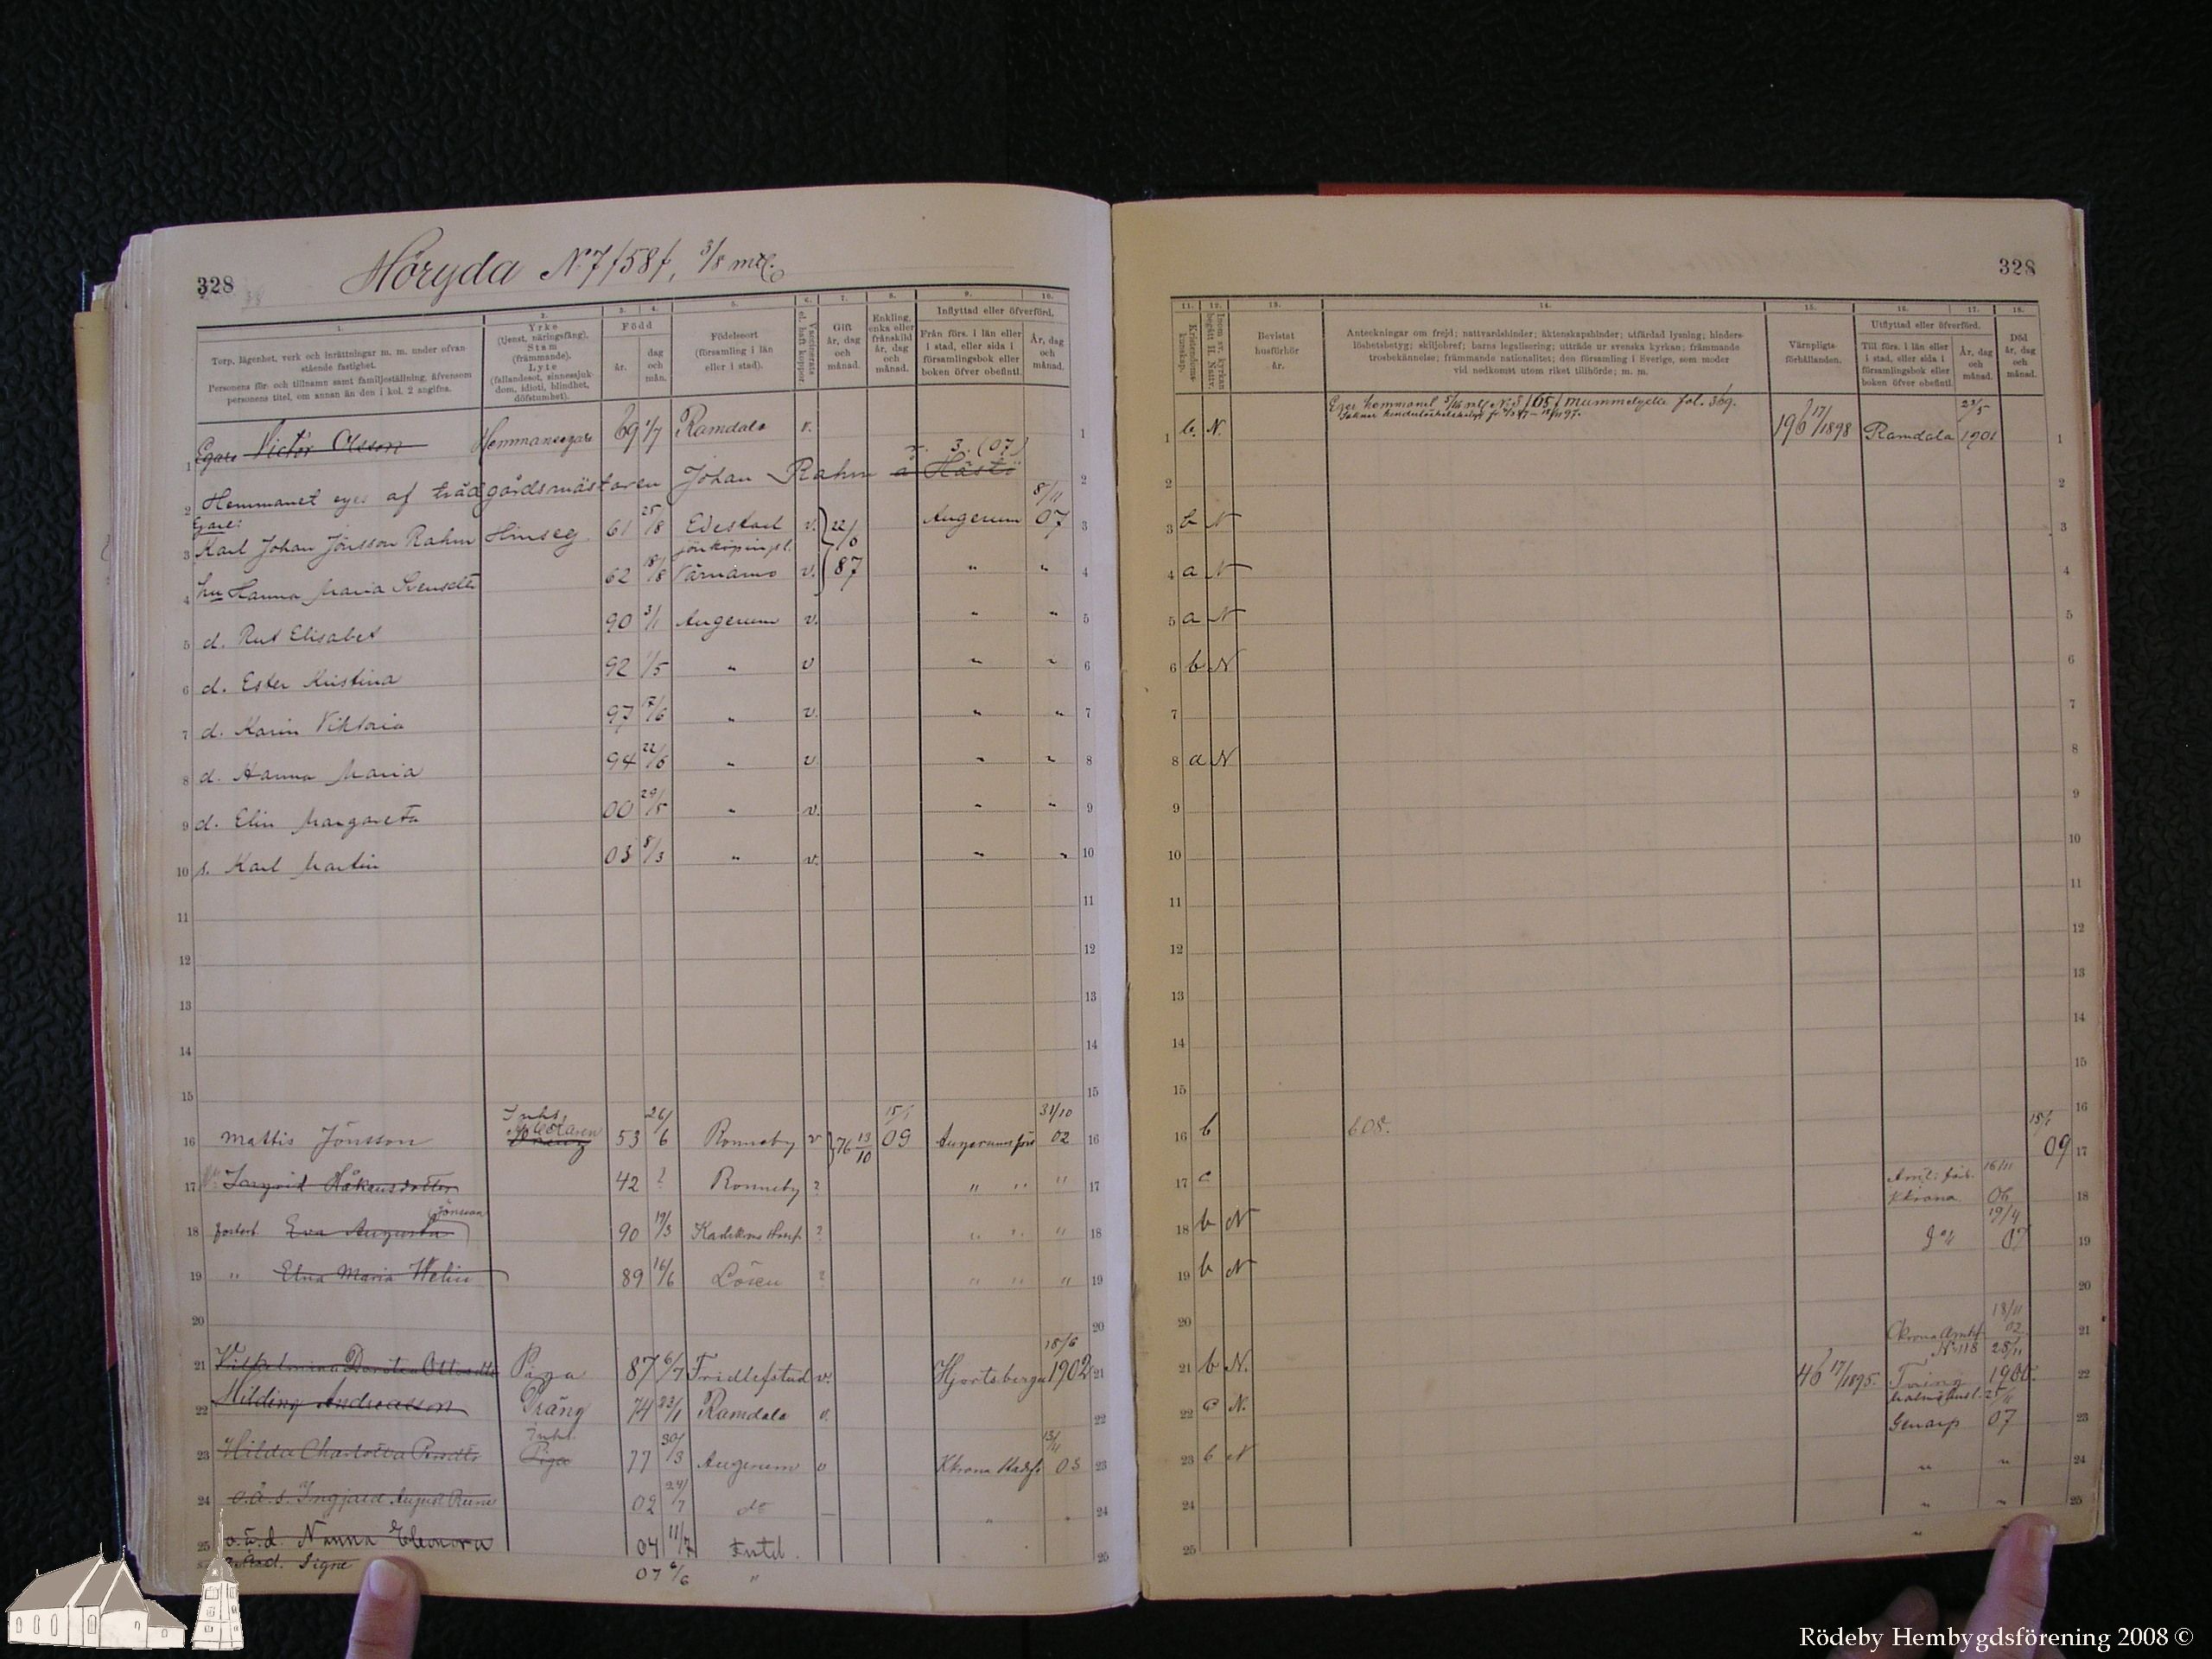 328
Höryda N:7 /58/, 3/8 mtl.
1.
2.
3.
4.
5.
6.
7.
8.
9.
10.
Torp, lägenhet, verk och inrättningar m. m. under ofvan
stående fastighet.
Personens för- och tillnamn samt familjeställning, äfvensom
personens titel, om annan än den i kol. 2 angifna.
Yrke
(tjenst, näringsfång),
Stam
(främmande).
Lyte
(fallandesot, sinnessjuk-
dom, idioti, blindhet,
döfstumhet).
Född
år.
dag
och
mån.
Födelseort
(församling i län
eller i stad).
Vaccinerats
el. haft koppor.
Gift
år, dag
och
månad.
Enkling,
enka eller
frånskild
år, dag
och
månad.
Inflyttad eller öfverförd.
Från förs. i län eller
i stad, eller sida i
församlingsbok eller
boken öfver obefintl.
År, dag
och
månad.
1 Egare Victor Olsson Hemmansegare 69 Ramdala v. 1
2 Hemmanet eges af trädgårdsmästaren Johan Rahm å Hästö 2
Egare:
3 Karl Johan Jönsson Rahm Hmseg. 61 25/8 Edestad v. 22/ Augerum 8/11 07 3
Jönköpingsl.
4 hu Hanna Maria Svensdtr 62 18/8 Värnamo v. 87 " " 4
5 d. Rut Elisabet 90 3/1 Augerum v. " " 5
6 d. Ester Kristina 92 1/5 " v " " 6
7 d. Karin Viktoria 97 " v. " " 7
8 d. Hanna Maria 94 22/6 " v " " 8
9 d. Elin Margareta 00 29/5 " v. " " 9
10 s. Karl Martin 03 8/3 " v. " " 10
11 11
12 12
13 13
14 14
15 15
16 Mattis Jönsson Inhs. 53 26/6 Ronneby v 76 13/10 15/1 09 Augerums förs 31/10 02 16
17 Ingrid Håkansdotter 42 ? Ronneby ? " " " 17
Jönsson
18 fosterb. Eva Augusta 90 19/3 ? " " " 18
19 " Elna Maria Welin 89 16/6 Lösen ? " " " 19
20 20
21 Vilhelmina Dorotea Ottosdtr Piga 87 6/7 Fridlefstad v. Hjortsberga 18/6 1902 21
22 Hilding Andreasson Dräng 74 23/1 Ramdala v. 22
23 Hilda Charlotta Inhs. Piga 77 30/3 Augerum v Kkrona Stadsf. 03 23
24 o.ä.s. Ingjald August Rune 02 24/7 do — " " 24
25 o.ä.d. Nanna Eleonora 04 11/7 25
Signe 07 6/6 "
328
11.
12.
13.
14.
15.
16.
17.
18.
Kristendoms-
kunskap.
Inom sv. kyrkan
begått H. Nattv.
Bevistat
husförhör
år.
Anteckningar om frejd; nattvardshinder; äktenskapshinder; utfärdad lysning; hinders-
löshetsbetyg; skiljobref; barns legalisering; utträde ur svenska kyrkan; främmande
trosbekännelse; främmande nationalitet; den församling i Sverige, som moder
vid nedkomst utom riket tillhörde; m. m.
Värnpligts-
förhållanden.
Utflyttad eller öfverförd.
Till förs. i län eller
i stad, eller sida i
församlingsbok eller
boken öfver obefintl.
År, dag
och
månad.
Död
år, dag
och
månad.
Eger hemmanet 5/16 mtl N:5 /65/ Mummelycke fol. 369.
1 b. N. 196 17/1898 Ramdala 23/5 1901 1
2 2
3 b N 3
4 a N 4
5 a N 5
6 b N 6
7 7
8 a N 8
9 9
10 10
11 11
12 12
13 13
14 14
15 15
16 b 608. 15/1 09 16
17 c Kkrona 16/11 17
18 b N 19/4 07 18
19 b N 19
20 20
21 b N. N:118 18/11 02 21
22 c N. 46 17/1895. 28/11 22
23 b N Genarp 07 23
24 " " 24
25 " " 25
Rödeby Hembygdsförening 2008 ©